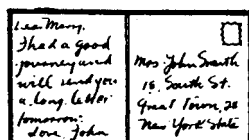 Dear Mary,
I had a good
journey and
will send you
a long letter
tomorrow.
Love, John
Mrs. John Smith
15, South St.
Great Town, 28
New York State